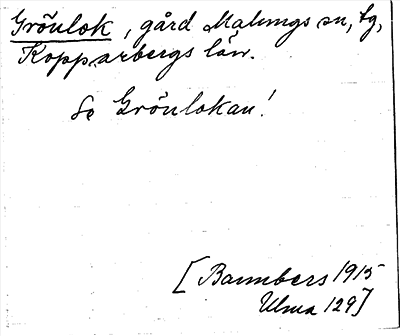 Grönlok, gård Malungs sn, tg,
Kopparbergs län.
Se Grönlokan!
[Bannbers 1915
Ulma 129]